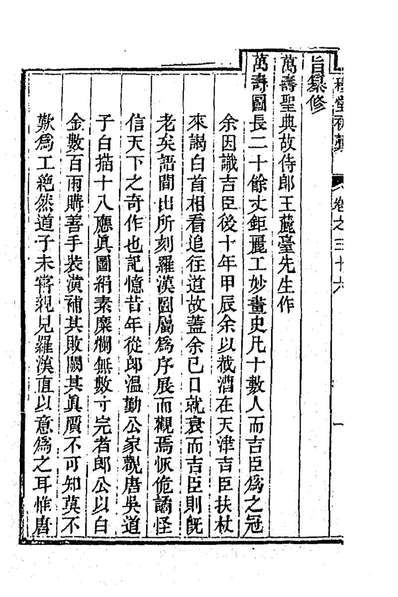 卷之三十六
旨纂修
萬壽聖典故侍郎王麓臺先生作
萬壽圖長二十餘丈鉅麗工妙畫史凡十數人而吉臣爲之冠
余因識吉臣後十年甲辰余以截漕在天津吉臣扶杖
來謁白首相看追往道故蓋余已日就衰而吉臣則旣
老矣語間出所刻羅漢圖屬爲序展而觀焉恢佹譎怪
信天下之奇作也記憶昔年從郎溫勤公家觀唐吳道
子白描十八應眞圖絹素糜爛無數寸完者郎公以白
金數百兩購善手裝潢補其敗闕其眞贋不可知莫不
歎爲工絶然道子未嘗親見羅漢直以意爲之耳惟唐